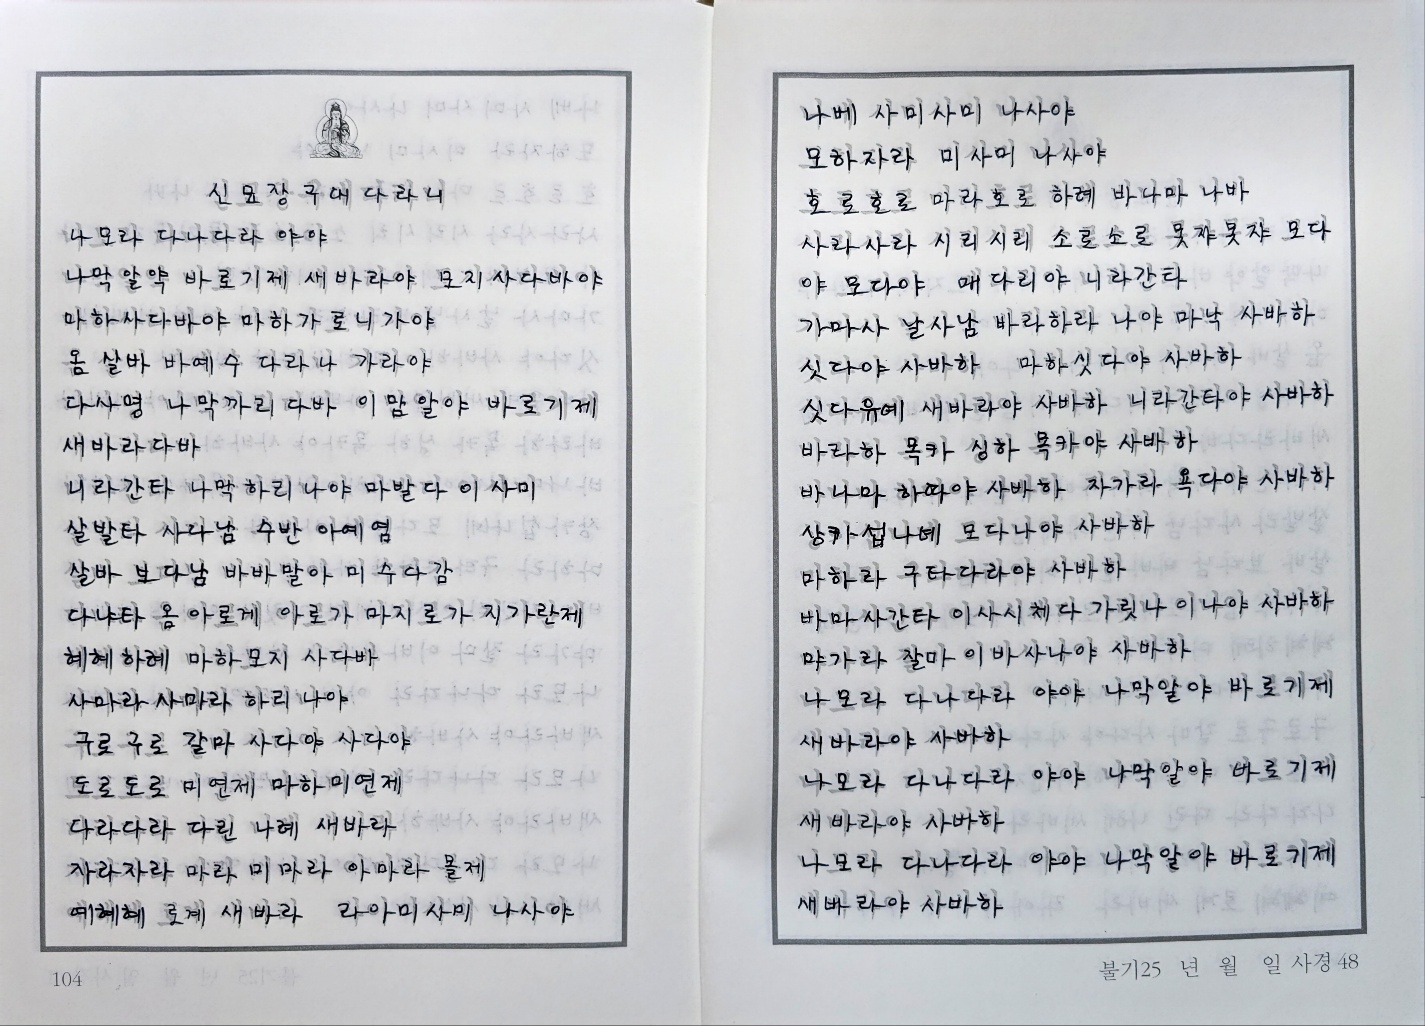 신묘장구대다라니
나모라 다나다라 야야
나막알약 바로기제 새바라야 모지사다바야
마하사다바야 마하가로니가야
옴 살바 바예수 다라나 가라야
다사명 나막까리다바 이맘알야 바로기제
새바라다바
니라간타 나막하리나야 마발다 이사미
살발타 사다남 수반 아예염
살바 보다남 바바말아 미수다감
다냐타 옴 아로계 아로가 마지로가 지가란제
혜혜하례 마하모지 사다바
사마라 사마라 하리나야
구로구로 갈마 사다야 사다야
도로도로 미연제 마하미연제
다라다라 다린 나혜 새바라
자라자라 마라 미마라 아마라 몰제
예혜혜 로계 새바라 라아미사미 나사야
104
나베 사미사미 나사야
모하자라 미사미 나사야
호로호로 마라호로 하례 바나마 나바
사라사라 시리시리 소로소로 못쟈못쟈 모다
야 모다야 매다리야 니라간타
가마사 날사남 바라하라 나야 마낙 사바하
싯다야 사바하 마하싯다야 사바하
싯다유예 새바라야 사바하 니라간타야 사바하
바라하 목카 싱하 목카야 사바하
바나마 하따야 사바하 자가라 욕다야 사바하
상카섭나녜 모다나야 사바하
마하라 구타다라야 사바하
바마사간타 이사시체다 가릿나 이나야 사바하
먀가라 잘마 이바사나야 사바하
나모라 다나다라 야야 나막알야 바로기제
새바라야 사바하
나모라 다나다라 야야 나막알야 바로기제
새바라야 사바하
나모라 다나다라 야야 나막알야 바로기제
새바라야 사바하
불기25 년 월 일 사경48